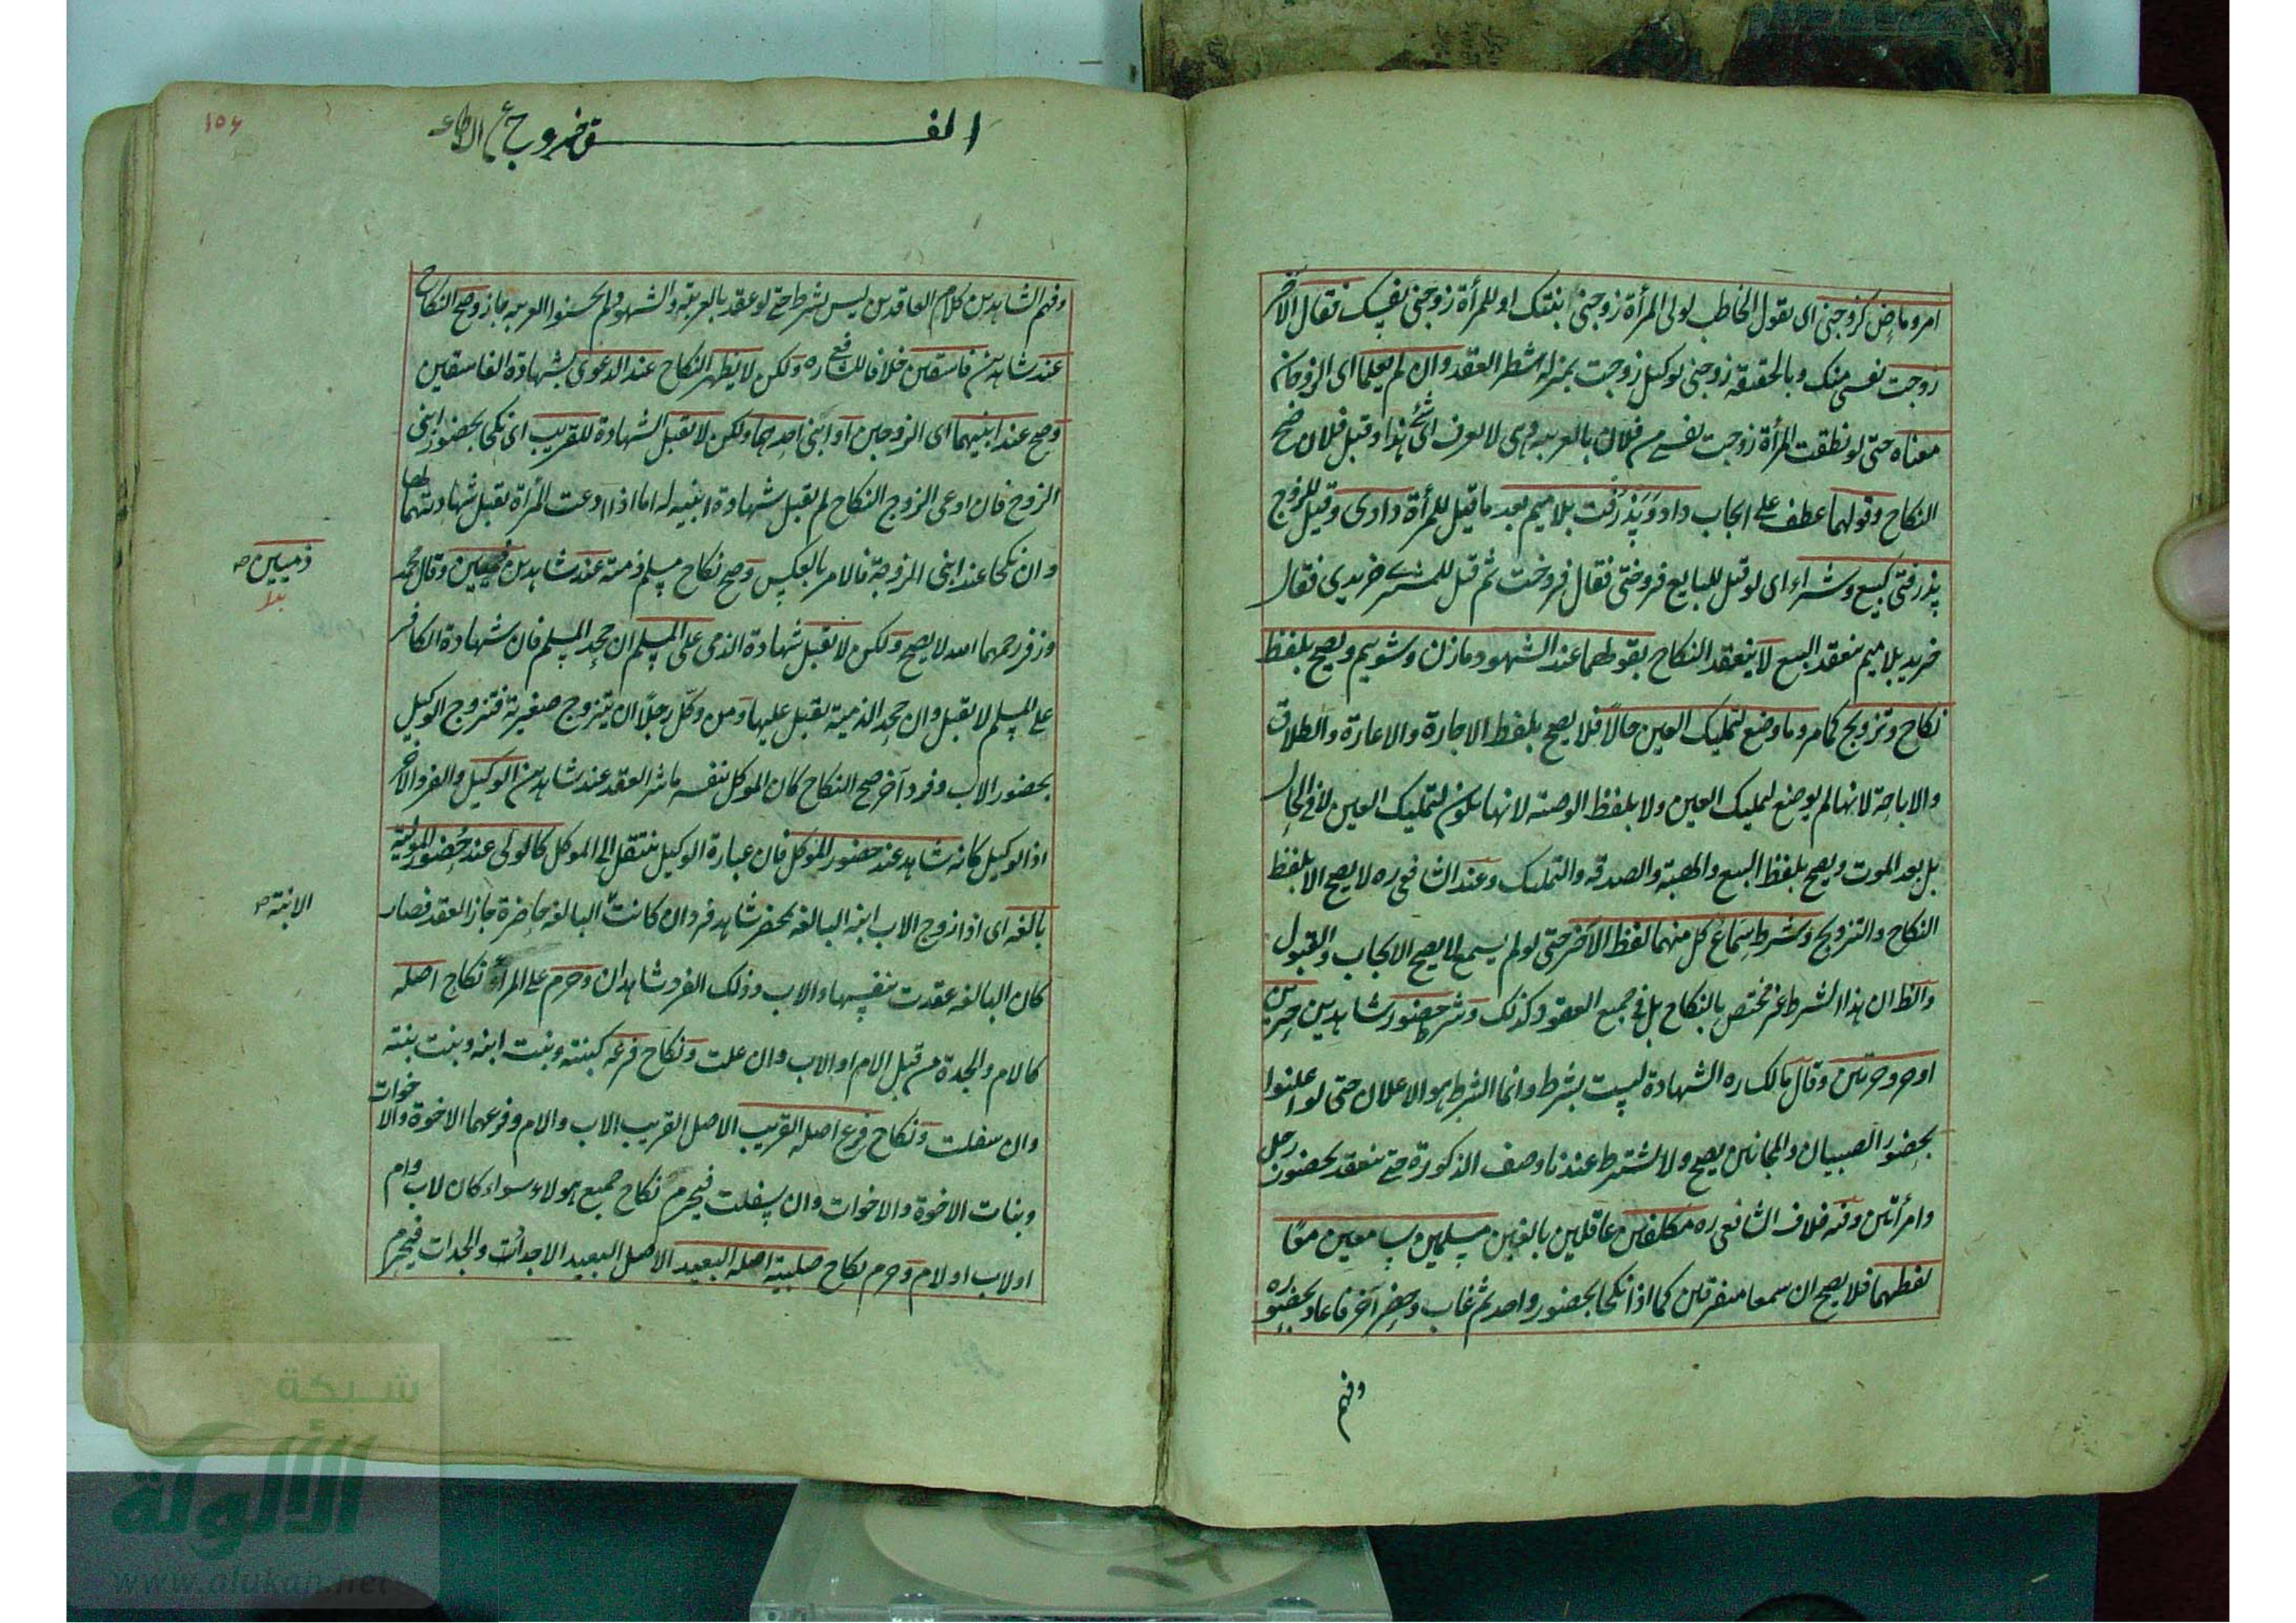 امر وماض كزوجني اى يقول الخاطب لولى المرأة زوجني ابنتك او للمرأة زوجني نفسك فقال الآخر
زوجت نفسى منك وبالحقيقة زوجنى توكيل زوجت بمنزلة شطر العقد وان لم يعلما اى الزوجان
معناه حتى لو نطقت المرأة زوجت نفسى من فلان بالعربية وهى لا تعرف اىّ شئ هذا وقبل فلان صح
النكاح وقولهما عطف على ايجاب داد وپذرفت بلا ميم بعد ما قيل للمرأة دادى وقيل للزوج
پذرفتى كبيع وشراء اى لو قيل للبايع فروختى فقال فروخت ثم قيل للمشترى خريدى فقال
خريد بلا ميم ينعقد البيع لا ينعقد النكاح بقولهما عند الشهود ما زن وشوييم ويصح بلفظ
نكاح وتزويج كما مر وما وضع لتمليك العين حالاً فلا يصح بلفظ الاجارة والاعارة والطلاق
والاباحة لانها لم يوضع لتمليك العين ولا بلفظ الوصية لانها يكون لتمليك العين لا فى الحال
بل بعد الموت ويصح بلفظ البيع والهبة والصدقة والتمليك وعند الشافعى ره لا يصح الا بلفظ
النكاح والتزويج وشرط سماع كل منهما لفظ الآخر حتى لو لم يسمعا لا يصح الايجاب والقبول
والظ ان هذا الشرط غير مختص بالنكاح بل فى جميع العقود كذلك وشرط حضور شاهدين حرين
او حر وحرتين وقال مالك ره الشهادة ليست بشرط وانما الشرط هو الاعلان حتى لو اعلنوا
بحضور الصبيان والمجانين يصح ولا يشترط عندنا وصف الذكورة حتى ينعقد بحضور رجل
وامرأتين وفيه خلاف الشافعى ره مكلفين عاقلين بالغين مسلمين سامعين معًا
لفظهما فلا يصح ان سمعا متفرقين كما اذا نكحا بحضور واحد ثم غاب وحضر آخر فاعاد بحضوره
وفهم
الفـــــــق خروج ع
١٥٦
وفهم الشاهدين كلام العاقدين ليس بشرط حتى لو عقد بالعربية والشهود لم يحسنوا العربية جاز وصح النكاح
عند شاهدين فاسقين خلافا للشافعى ره ولكن لا يظهر النكاح عند الدعوى بشهادة الفاسقين
وصح عند ابنيهما اى الزوجين او ابنى احدهما ولكن لا تقبل الشهادة للقريب اى نكحا بحضور ابنى
الزوج فان ادعى الزوج النكاح لم يقبل شهادة ابنيه له اما اذا ادعت المرأة يقبل شهادتهما لها
وان نكحا عند ابنى الزوجة فالامر بالعكس وصح نكاح مسلم ذمية عند شاهدين ذميين وقال محمد
ذميين صح
بدل
وزفر رحمهما الله لا يصح ولكن لا تقبل شهادة الذمى على المسلم ان جحد المسلم فان شهادة الكافر
على المسلم لا يقبل وان جحد الذمية يقبل عليها ومن وكّل رجلاً ان يتزوج صغيرته فتزوج الوكيل
بحضور الاب وفرد آخر صح النكاح كان الموكل بنفسه باشر العقد عند شاهدين الوكيل والفرد الآخر
اذ الوكيل كانه شاهد عند حضور الموكل فان عبارة الوكيل ينتقل الى الموكل كالولى عند حضور المولية
بالغة اى اذا زوج الاب ابنه البالغة بحضر شاهد فرد وان كانت البالغة حاضرة جاز العقد فصار
الابنة صح
كان البالغة عقدت بنفسها والاب وذلك الفرد شاهدان وحرم على المرأ نكاح اصله
كالام والجدة من قبل الام او الاب وان علت ونكاح فرعه كبنته وبنت ابنه وبنت بنته
وان سفلت ونكاح فرع اصله القريب الاصل القريب الاب والام وفرعهما الاخوة والاخوات
وبنات الاخوة والاخوات وان سفلت فيحرم نكاح جميع هولاء سواء كان لاب وام
او لاب او لام وحرم نكاح صلبية اصله البعيد الاصل البعيد الاجداد والجدات فيحرم
شبكة
الألوكة
www.alukah.net